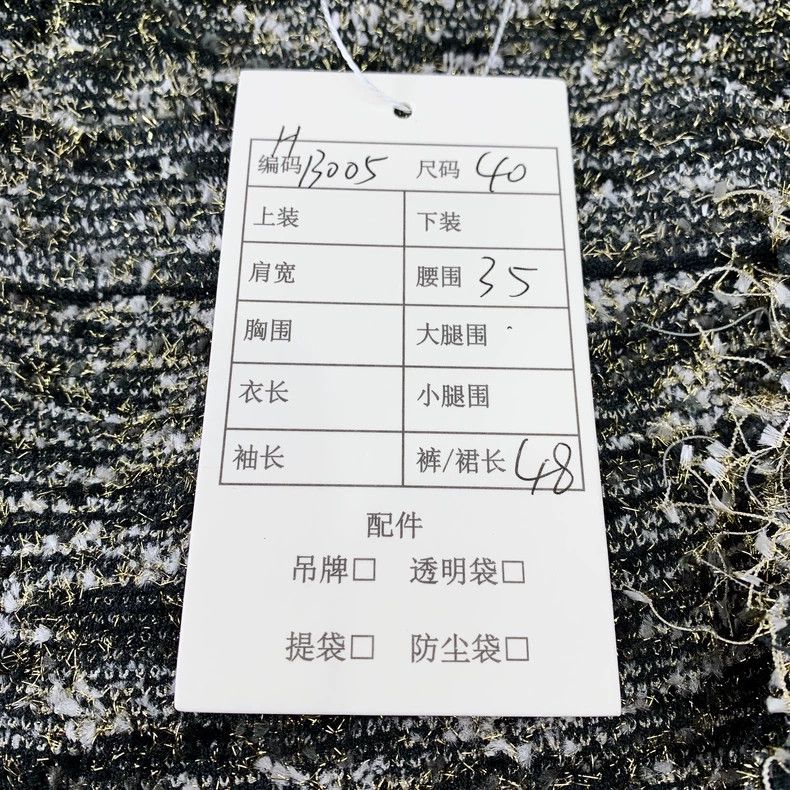 编码 HB005 尺码 40
上装 下装
肩宽 腰围 35
胸围 大腿围
衣长 小腿围
袖长 裤/裙长 48
配件
吊牌□ 透明袋□
提袋□ 防尘袋□